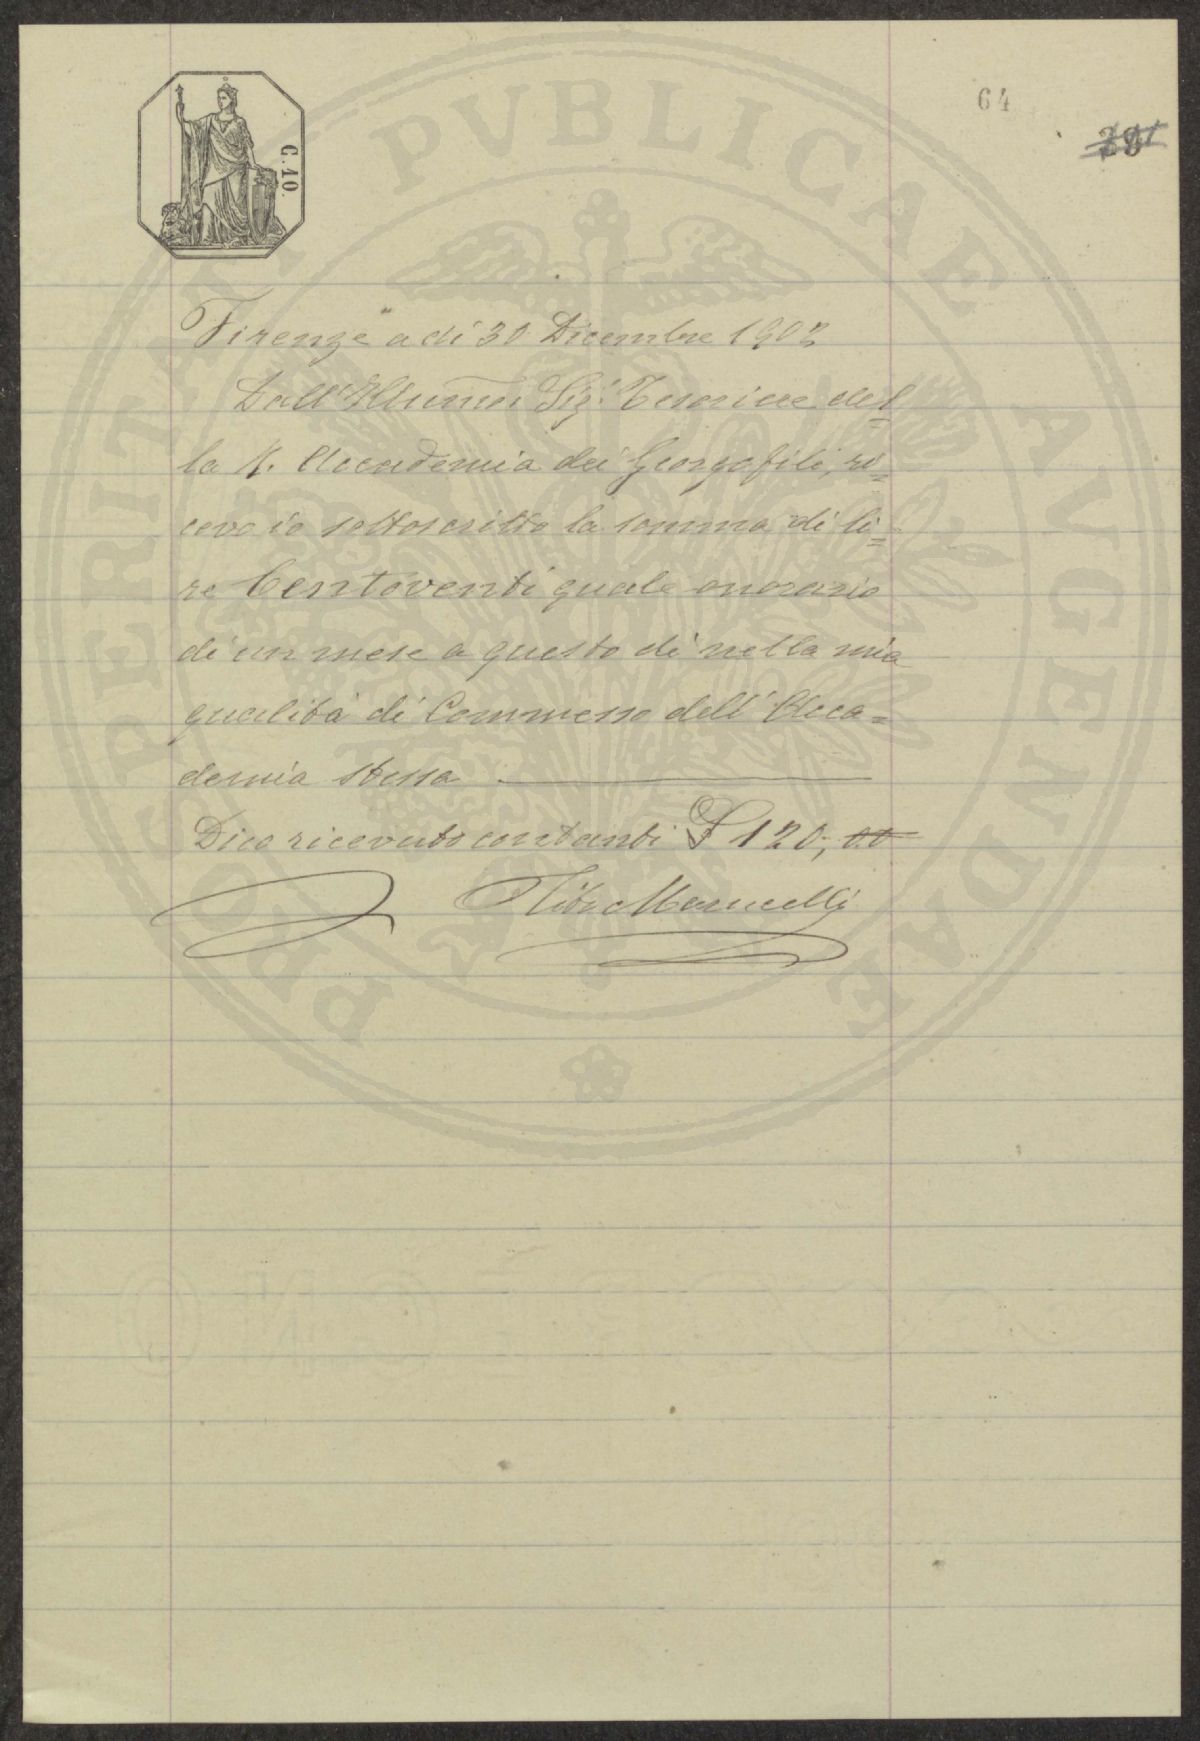 64
C. 10.
PROSPERITATI PVBLICAE AVGENDAE
Firenze a dì 30 Dicembre 1902
Dall' Illumo Sig.r Tesoriere del=
la R. Accademia dei Georgofili, ri=
cevo io sottoscritto la somma di li=
re Centoventi quale onorario
di un mese a questo dì nella mia
qualità di Commesso dell' Acca=
demia stessa
Dico ricevuto contanti £ 120,00
Tito Marucelli